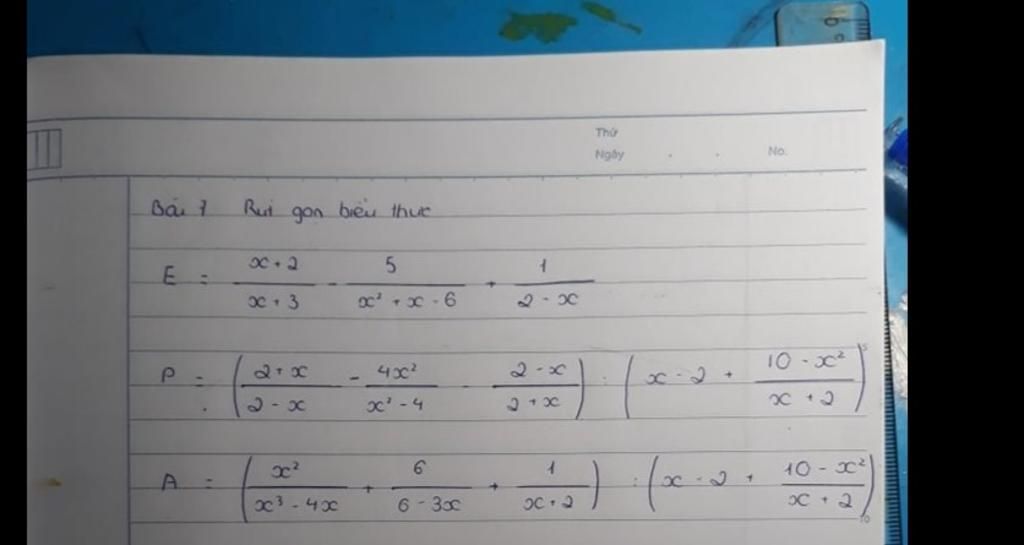 Thứ
Ngày . . No.
Bài 7 Rút gọn biểu thức
E = (x + 2)/(x + 3) - 5/(x² + x - 6) + 1/(2 - x)
P = ((2 + x)/(2 - x) - 4x²/(x² - 4) - (2 - x)/(2 + x)) : (x - 2 + (10 - x²)/(x + 2))
5
A = (x²/(x³ - 4x) + 6/(6 - 3x) + 1/(x + 2)) : (x - 2 + (10 - x²)/(x + 2))
10